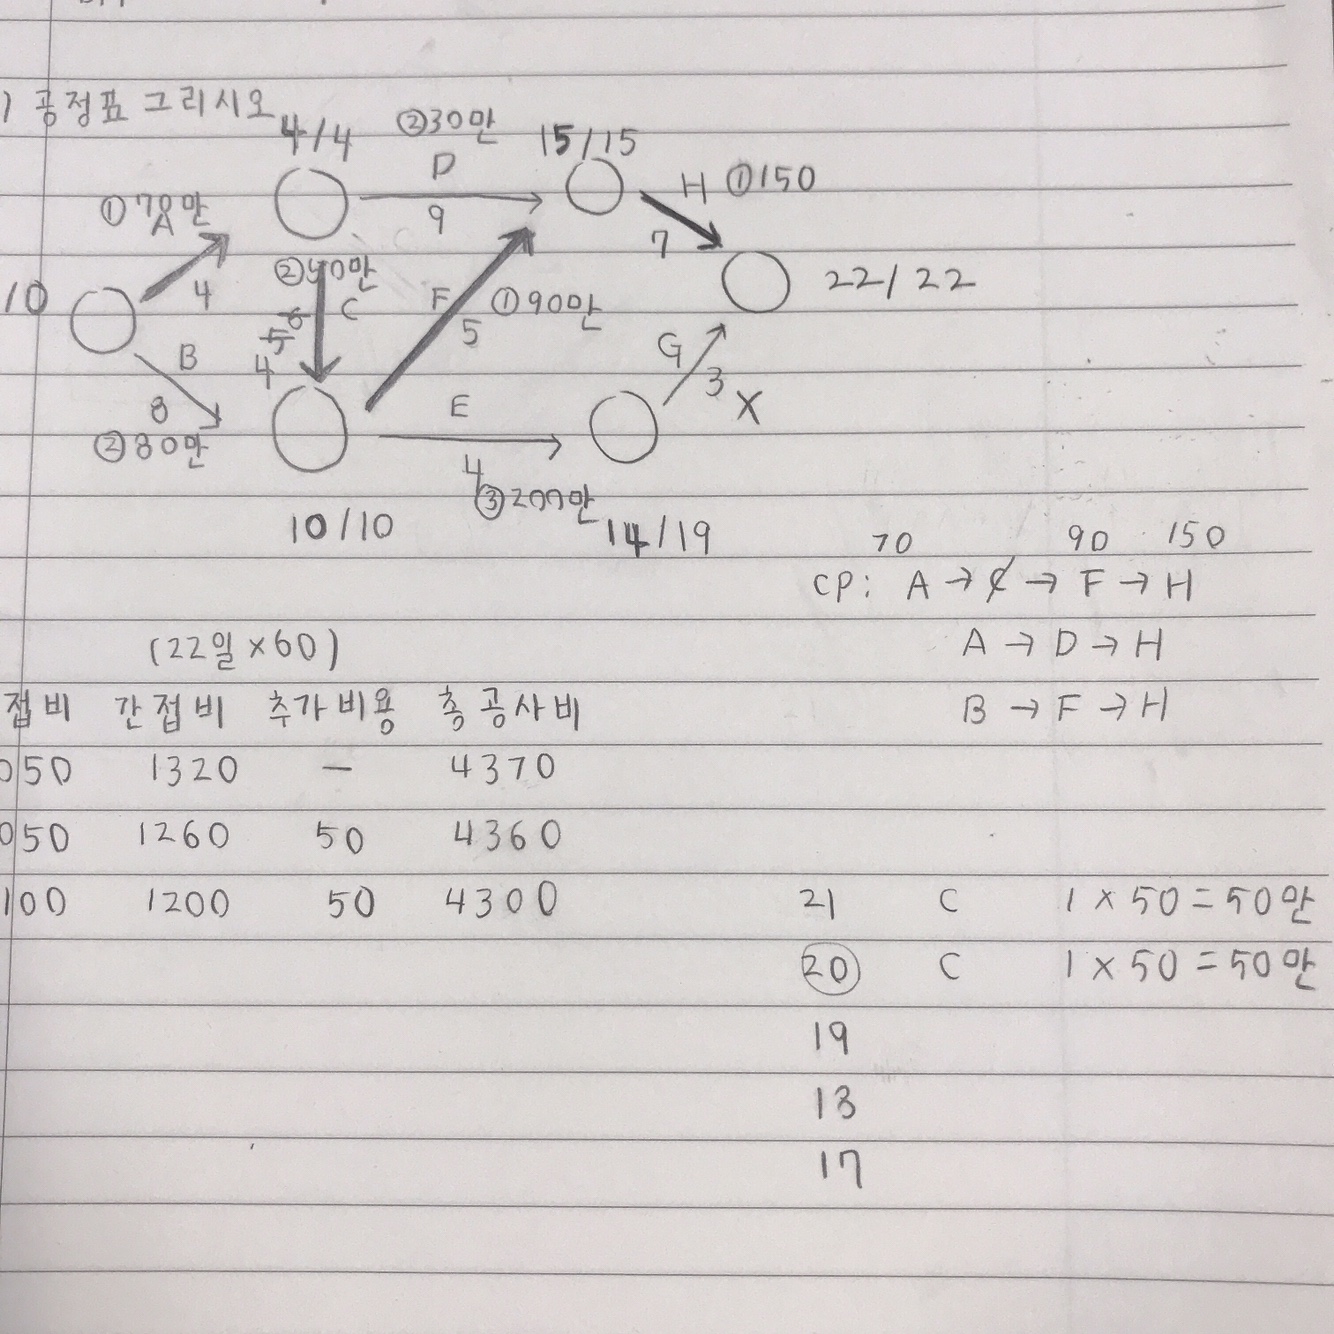 ) 공정표 그리시오
4/4 ②30만 15/15
D H ①150
①70만 A 9 7
10 4 ②40만 F ①90만 22/22
6 C 5
B 5 G
8 4 E 3 X
②80만 4
③200만
10/10 14/19
70 90 150
CP: A → C → F → H
(22일×60) A → D → H
접비 간접비 추가비용 총공사비 B → F → H
050 1320 — 4370
050 1260 50 4360
100 1200 50 4300 21 C 1 × 50 = 50만
20 C 1 × 50 = 50만
19
18
17